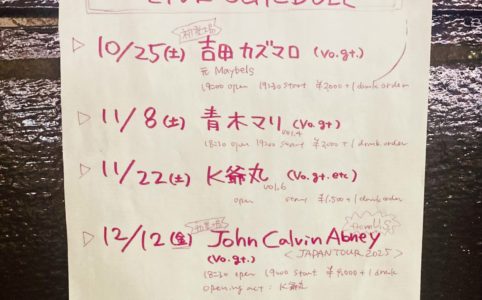 LIVE SCHEDULE
初登場
10/25(土) 吉田カズマロ (Vo.gt.)
元 Maybels
19:00 open 19:30 start ¥2000+1drink order
11/8(土) 青木マリ (Vo.gt)
vol.4
18:30 open 19:00 start ¥2000+1drink order
11/22(土) K爺丸 (Vo.gt.etc)
vol.6
open start ¥1,500+1drink order
初登場
from U.S
12/12(金) John Calvin Abney
(Vo.gt.) <JAPAN TOUR 2025>
18:30 open 19:00 start +1drink
opening act: K爺丸